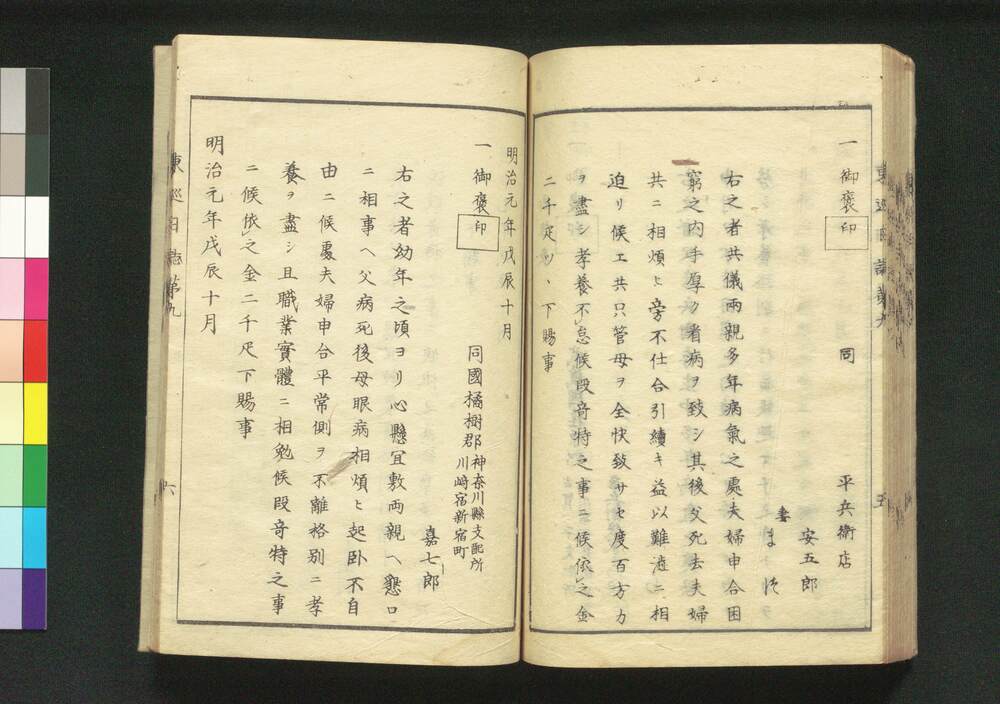 一 御褒印 同 平兵衛店
安五郎
妻 ま
右之者共儀両親多年病氣之處夫婦申合困
窮之内手厚ク看病ヲ致シ其後父死去夫婦
共ニ相煩ヒ旁不仕合引續キ益以難澁ニ相
迫リ候エ共只管母ヲ全快致サセ度百方力
ヲ盡シ孝養不怠候段竒特之事ニ候依之金
二千疋ツヽ下賜事
明治元年戊辰十月
一 御褒印 同國橘樹郡神奈川縣支配所川崎宿新宿町
嘉七郎
右之者幼年之頃ヨリ心懸冝敷両親ヘ懇ロ
ニ相事ヘ父病死後母眼病相煩ヒ起卧不自
由ニ候處夫婦申合平常側ヲ不離格別ニ孝
養ヲ盡シ且職業實體ニ相勉候段竒特之事
ニ候依之金二千疋下賜事
明治元年戊辰十月
東巡日誌第九
六